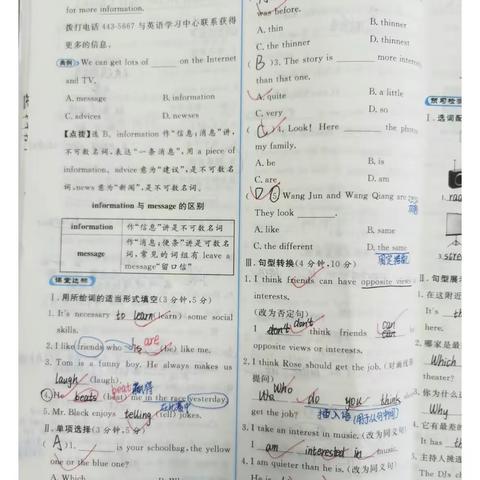 for more information.
拨打电话 443-5667 与英语学习中心联系获得
更多的信息。
典例 We can get lots of ______ on the Internet
and TV.
A. message B. information
C. advices D. newses
【点拨】选 B。information 作“信息;消息”讲,
不可数名词,表达“一条消息”,用 a piece of
information。advice 意为“建议”,是不可数名
词;news 意为“新闻”,是不可数名词。
information 与 message 的区别
information 作“信息”讲是不可数名词
message 作“消息,便条”讲是可数名
词,常见的词组有 leave a
message“留口信”
课堂达标
Ⅰ.用所给词的适当形式填空(3分钟,5分)
1. It's necessary to learn(learn) some social
skills.
2. I like friends who are (be) like me.
3. Tom is a funny boy. He always makes us
laugh (laugh).
4. He beats (beat) me in the race yesterday.
beat 赢得
5. Mr. Black enjoys telling (tell) jokes.
Ⅱ.单项选择(3分钟,5分)
(A)1. ______ is your schoolbag, the yellow
one or the blue one?
A. Which
was before.
A. thin B. thinner
C. the thinner D. thinnest
(B)3. The story is ______ more
than that one.
A. quite B. a little
C. very D. so
4. Look! Here ______ the photo
my family.
A. be B. is
C. are D. am
(D)5. Wang Jun and Wang Qiang are
They look ______.
A. like B. same
C. the different D. the same
固定搭配
Ⅲ.句型转换(4分钟,10分)
1. I think friends can have opposite views
interests.
(改为否定句)
I don't think friends can
opposite views or interests.
2. I think Rose should get the job.(对画线部
提问)
Who do you think
get the job? 插入语
3. I take an interest in music.(改为同义句)
I am interested in music.
4. I am quieter than he is.(改为同义句)
He is
预习检测
Ⅰ.选词
Ⅱ.句型
1. 在这附近
It's
2. 哪家是最
Which
theater?
3. 你为什么
Why
4. 它有最
It has
5. 主持人挑
The DJs